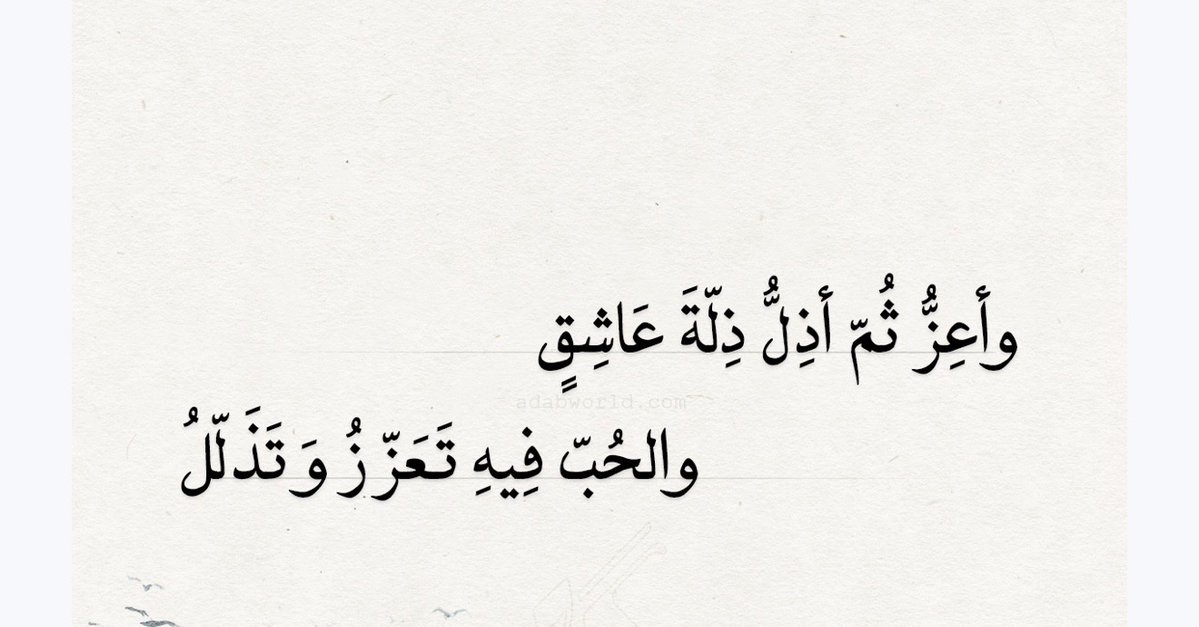 وأعِزُّ ثُمّ أذِلُّ ذِلّةَ عَاشِقٍ
adabworld.com
والحُبّ فِيهِ تَعَزّزُ وَتَذَلّلُ